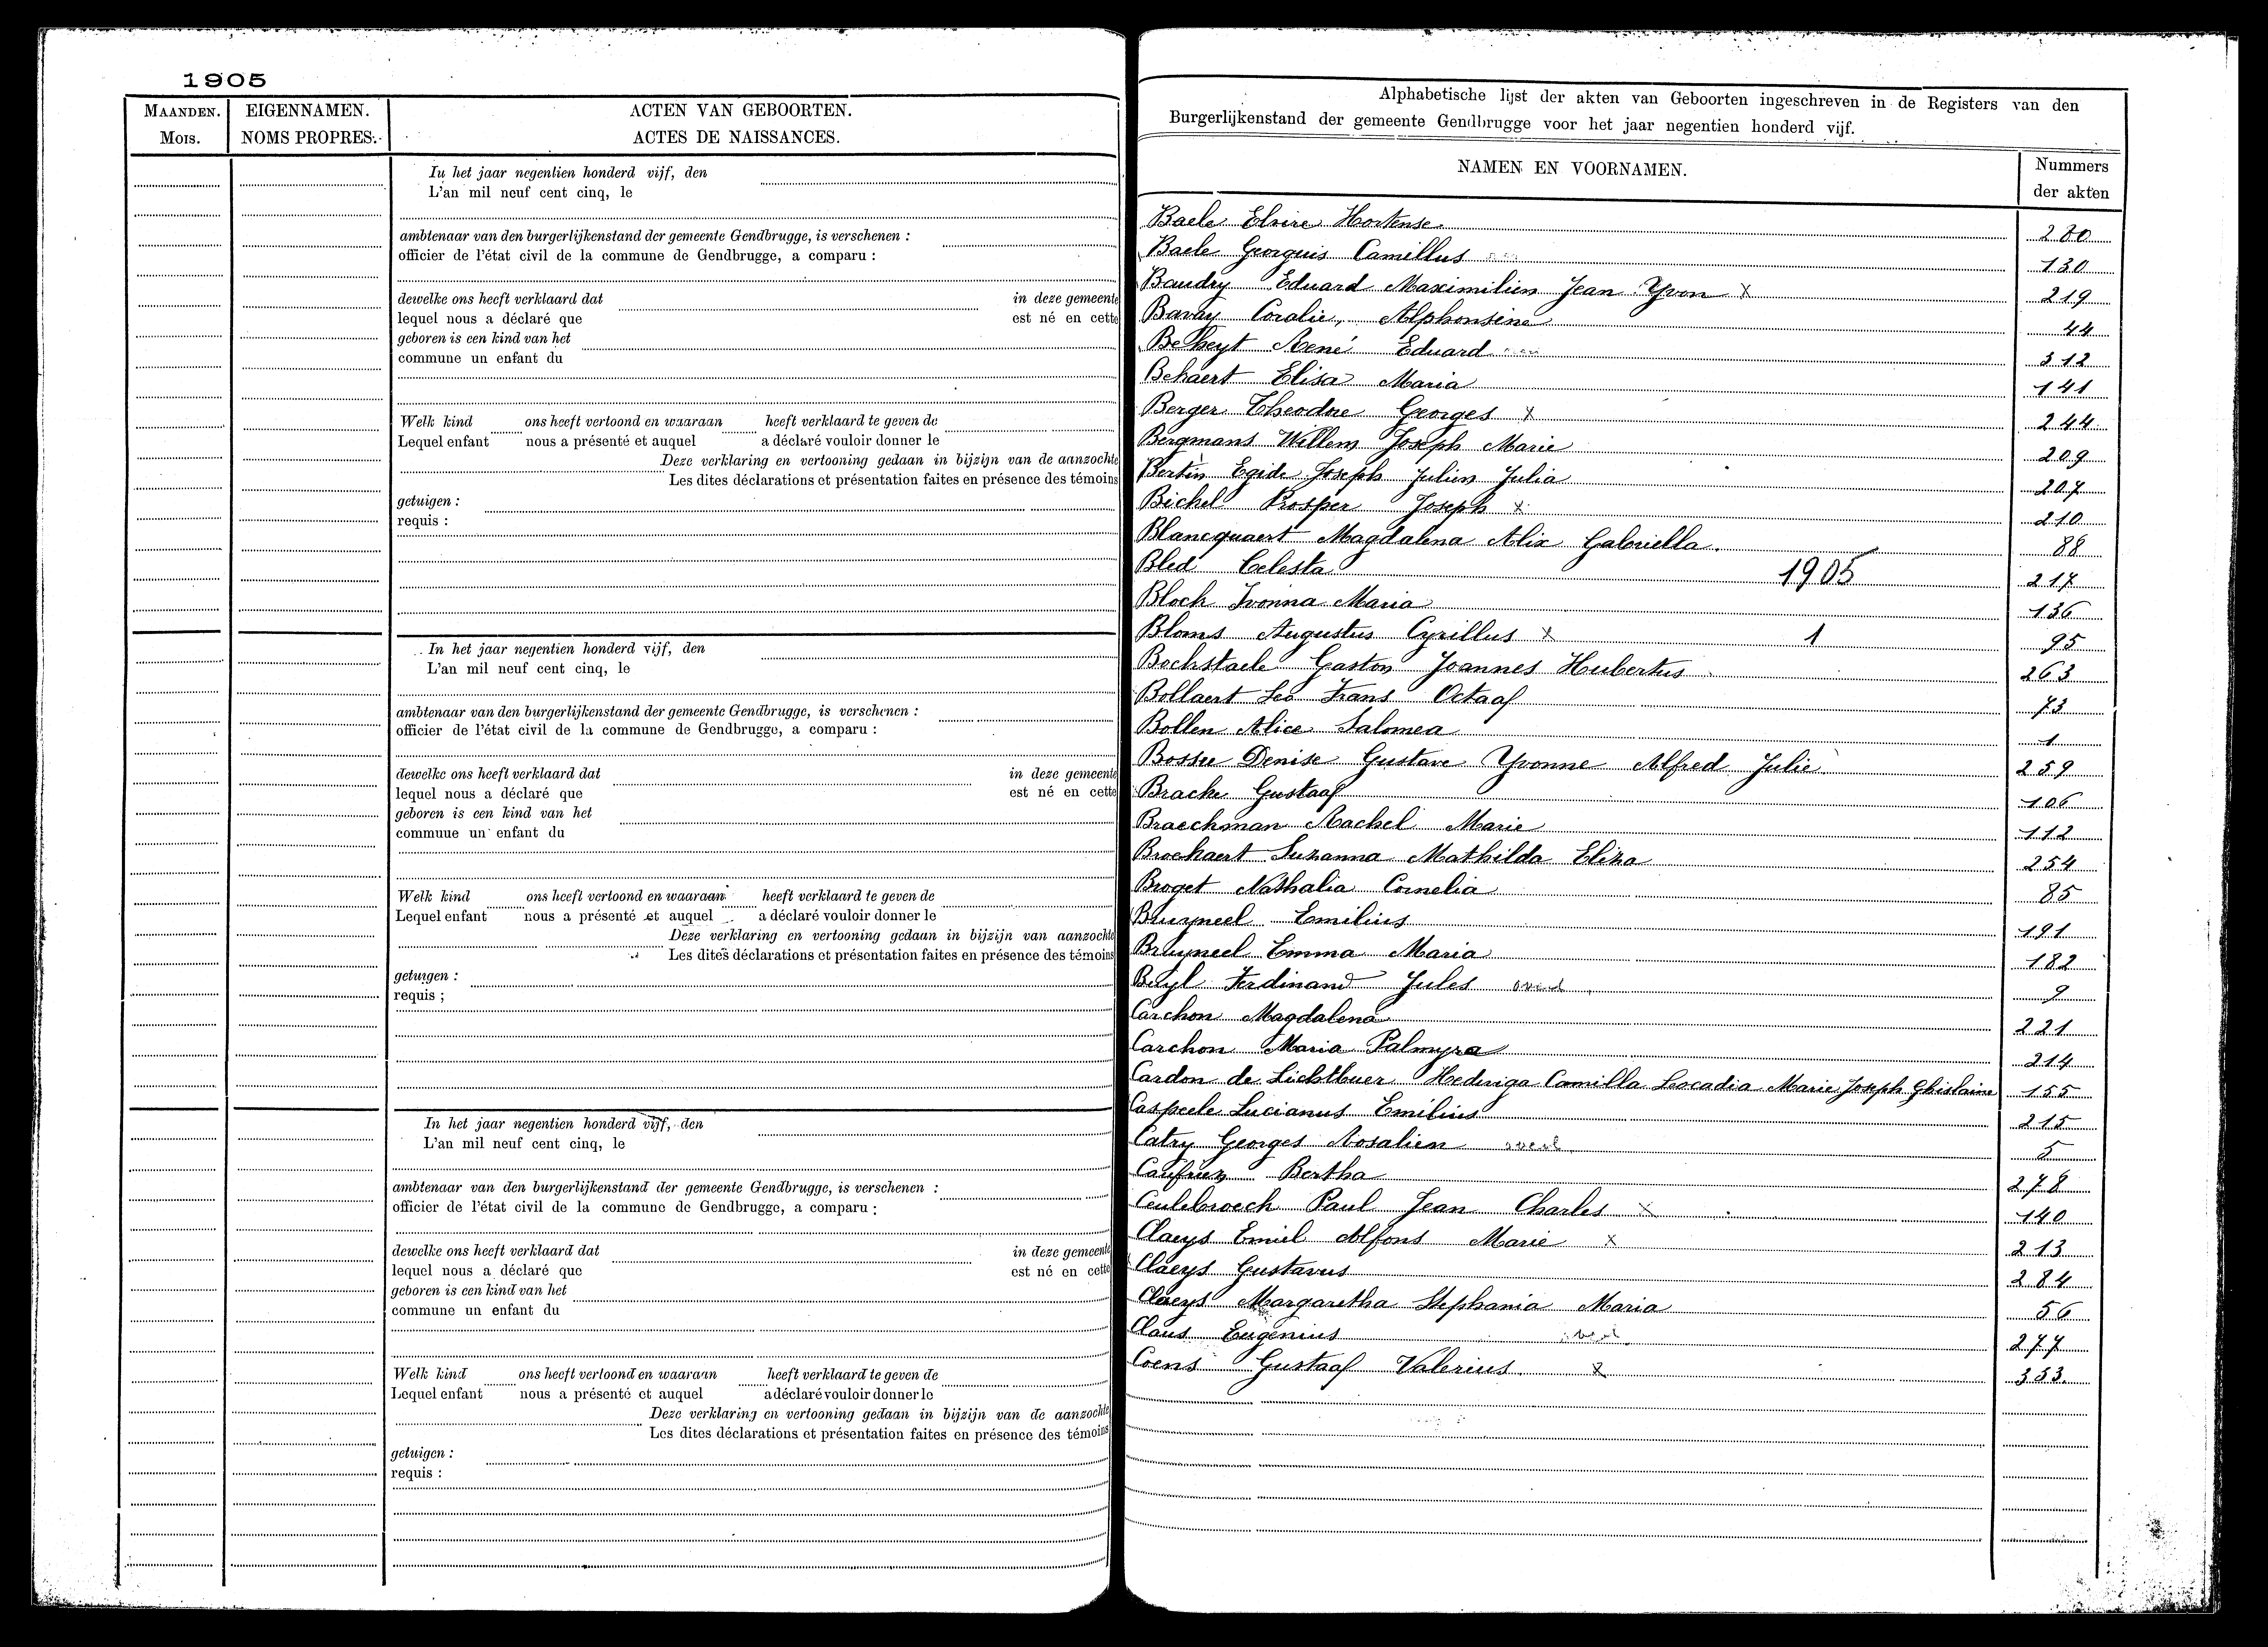 1905
MAANDEN. EIGENNAMEN. ACTEN VAN GEBOORTEN.
MOIS. NOMS PROPRES. ACTES DE NAISSANCES.
In het jaar negentien honderd vijf, den
L'an mil neuf cent cinq, le
ambtenaar van den burgerlijkenstand der gemeente Gendbrugge, is verschenen :
officier de l'état civil de la commune de Gendbrugge, a comparu :
dewelke ons heeft verklaard dat in deze gemeente
lequel nous a déclaré que est né en cette
geboren is een kind van het
commune un enfant du
Welk kind ons heeft vertoond en waaraan heeft verklaard te geven de
Lequel enfant nous a présenté et auquel a déclaré vouloir donner le
Deze verklaring en vertooning gedaan in bijzijn van de aanzochte
Les dites déclarations et présentation faites en présence des témoins
getuigen :
requis :
In het jaar negentien honderd vijf, den
L'an mil neuf cent cinq, le
ambtenaar van den burgerlijkenstand der gemeente Gendbrugge, is verschenen :
officier de l'état civil de la commune de Gendbrugge, a comparu :
dewelke ons heeft verklaard dat in deze gemeente
lequel nous a déclaré que est né en cette
geboren is een kind van het
commune un enfant du
Welk kind ons heeft vertoond en waaraan heeft verklaard te geven de
Lequel enfant nous a présenté et auquel a déclaré vouloir donner le
Deze verklaring en vertooning gedaan in bijzijn van aanzochte
Les dites déclarations et présentation faites en présence des témoins
getuigen :
requis ;
In het jaar negentien honderd vijf, den
L'an mil neuf cent cinq, le
ambtenaar van den burgerlijkenstand der gemeente Gendbrugge, is verschenen :
officier de l'état civil de la commune de Gendbrugge, a comparu :
dewelke ons heeft verklaard dat in deze gemeente
lequel nous a déclaré que est né en cette
geboren is een kind van het
commune un enfant du
Welk kind ons heeft vertoond en waaraan heeft verklaard te geven de
Lequel enfant nous a présenté et auquel a déclaré vouloir donner le
Deze verklaring en vertooning gedaan in bijzijn van de aanzochte
Les dites déclarations et présentation faites en présence des témoins
getuigen :
requis :
Alphabetische lijst der akten van Geboorten ingeschreven in de Registers van den
Burgerlijkenstand der gemeente Gendbrugge voor het jaar negentien honderd vijf.
NAMEN EN VOORNAMEN. Nummers
der akten
Baele Elvire Hortense 280
Baele Georguis Camillus 130
Baudry Eduard Maximilien Jean Yvon x 219
Bavay Coralie, Alphonsine 44
Betheyt René Eduard 312
Behaert Elisa Maria 141
Berger Theodne Georges x 244
Bergmans Willem Joseph Marie 209
Bertin Egide Joseph Julien Julia 207
Bichel Prosper Joseph x 210
Blancquaert Magdalena Alix Gabriella. 88
Bled Celesta 1905 217
Bloch Ivonna Maria 136
Bloms Augustus Cyrillus x 1 95
Bockstaele Gaston Joannes Hubertus 263
Bollaert Leo Frans Octaaf 73
Bollen Alice Salomea 1
Bossu Denise Gustave Yvonne Alfred Julie 259
Bracke Gustaaf 106
Braeckman Rachel Marie 112
Brockaert Suzanna Mathilda Eliza 254
Broget Nathalia Cornelia 85
Bruyneel Emilius 191
Bruyneel Emma Maria 182
Buyl Ferdinand Jules overl 9
Carchon Magdalena 221
Carchon Maria Palmyra 214
Cardon de Lichtbuer Hedwiga Camilla Leocadia Marie Joseph Ghislaine 155
Caspeele Lucianus Emilius 215
Catry Georges Rosalien overl. 5
Caufriez Bertha 278
Ceulebroeck Paul Jean Charles x 140
Claeys Emiel Alfons Marie x 213
Claeys Gustavus 284
Claeys Margaretha Stephania Maria 56
Claus Eugenius 277
Coens Gustaaf Valerius. x 353.